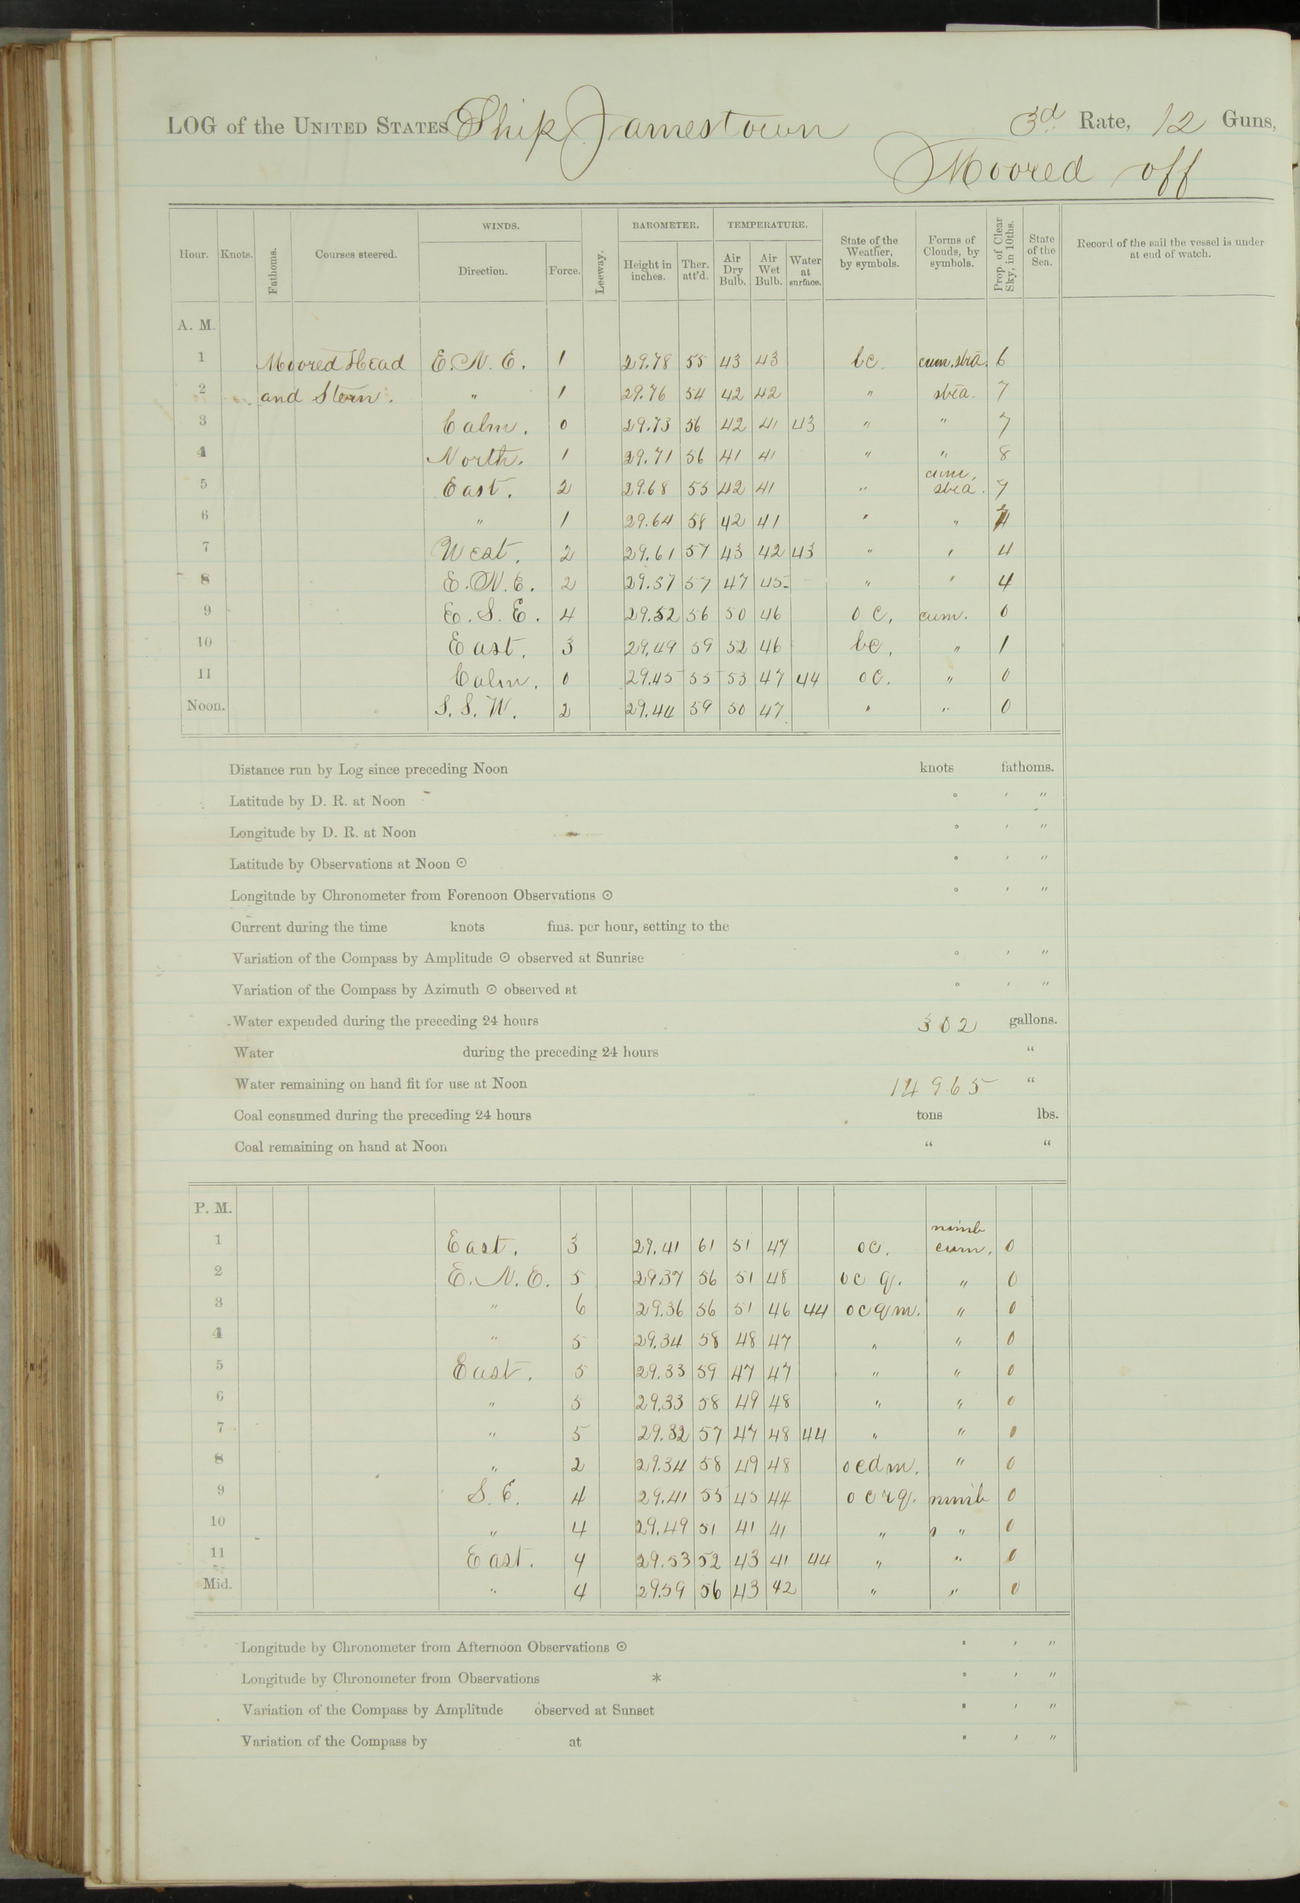 LOG of the UNITED STATES Ship Jamestown 3d Rate, 12 Guns,
Moored off
Hour. Knots. Fathoms. Courses steered. WINDS. Direction. Force. Leeway. BAROMETER. Height in inches. Ther. att'd. TEMPERATURE. Air Dry Bulb. Air Wet Bulb. Water at surface. State of the Weather, by symbols. Forms of Clouds, by symbols. Prop. of Clear Sky, in 10ths. State of the Sea. Record of the sail the vessel is under at end of watch.
A. M.
1 Moored Head E. N. E. 1 29.78 55 43 43 bc. cum. stra. 6
2 and Stern. " 1 29.76 54 42 42 " stra. 7
3 Calm. 0 29.73 56 42 41 43 " " 7
4 North. 1 29.71 56 41 41 " " 8
5 East. 2 29.68 55 42 41 " cum. stra. 7
6 " 1 29.64 58 42 41 " "
7 West. 2 29.61 57 43 42 43 " " 4
8 E. N. E. 2 29.57 57 47 45 " " 4
9 E. S. E. 4 29.52 56 50 46 o c. cum. 0
10 East. 3 29.49 59 52 46 bc. " 1
11 Calm. 0 29.45 55 53 47 44 oc. " 0
Noon. S. S. W. 2 29.44 59 50 47 " " 0
Distance run by Log since preceding Noon knots fathoms.
Latitude by D. R. at Noon ° ' "
Longitude by D. R. at Noon ° ' "
Latitude by Observations at Noon ☉ ° ' "
Longitude by Chronometer from Forenoon Observations ☉ ° ' "
Current during the time knots fms. per hour, setting to the
Variation of the Compass by Amplitude ☉ observed at Sunrise ° ' "
Variation of the Compass by Azimuth ☉ observed at ° ' "
Water expended during the preceding 24 hours 302 gallons.
Water during the preceding 24 hours "
Water remaining on hand fit for use at Noon 14965 "
Coal consumed during the preceding 24 hours tons lbs.
Coal remaining on hand at Noon " "
P. M.
1 East. 3 29.41 61 51 47 oc. nimb cum. 0
2 E. N. E. 5 29.37 56 51 48 oc q. " 0
3 " 6 29.36 56 51 46 44 ocqm. " 0
4 " 5 29.34 58 48 47 " " 0
5 East. 5 29.33 59 47 47 " " 0
6 " 5 29.33 58 49 48 " " 0
7 " 5 29.32 57 47 48 44 " " 0
8 " 2 29.34 58 49 48 ocdm. " 0
9 S. E. 4 29.41 55 45 44 o c r q. nimb 0
10 " 4 29.49 51 41 41 " " " 0
11 East. 4 29.53 52 43 41 44 " " 0
Mid. " 4 29.59 56 43 42 " " 0
Longitude by Chronometer from Afternoon Observations ☉ ° ' "
Longitude by Chronometer from Observations * ° ' "
Variation of the Compass by Amplitude observed at Sunset ° ' "
Variation of the Compass by at ° ' "